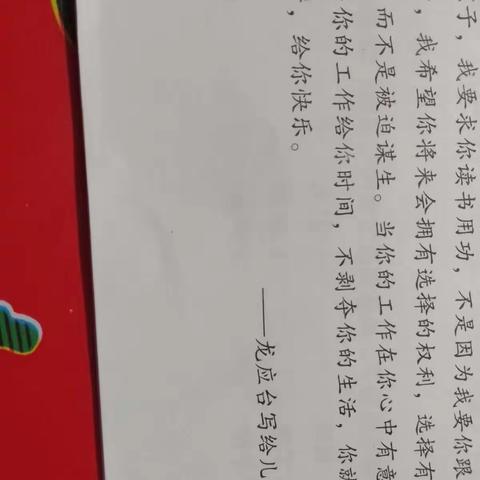 子，我要求你读书用功，不是因为我要你跟
，我希望你将来会拥有选择的权利，选择有
而不是被迫谋生。当你的工作在你心中有意
你的工作给你时间，不剥夺你的生活，你就
，给你快乐。
——龙应台写给儿